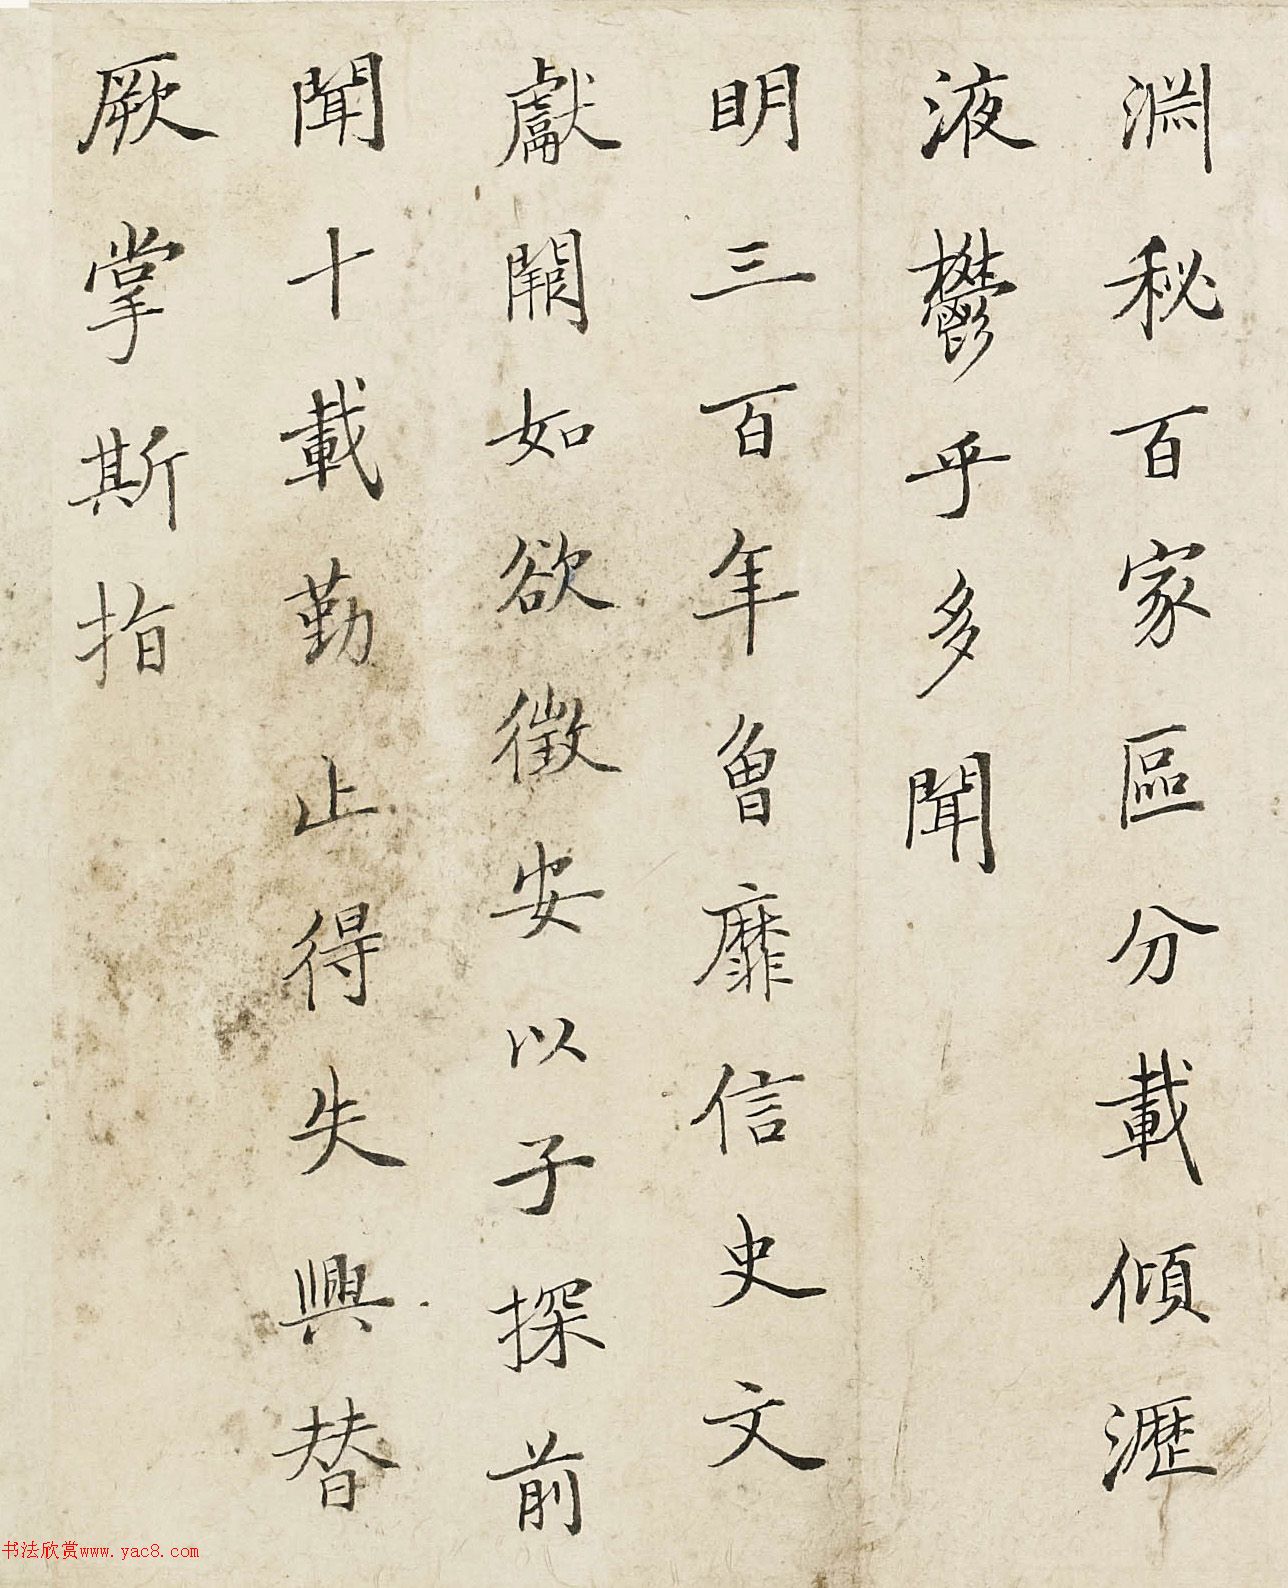 淵秘百家區分載傾瀝
液鬱乎多聞
明三百年曾靡信史文
獻闕如欲徵安以子探前
聞十載勤止得失興替
厥掌斯指
书法欣赏www.yac8.com